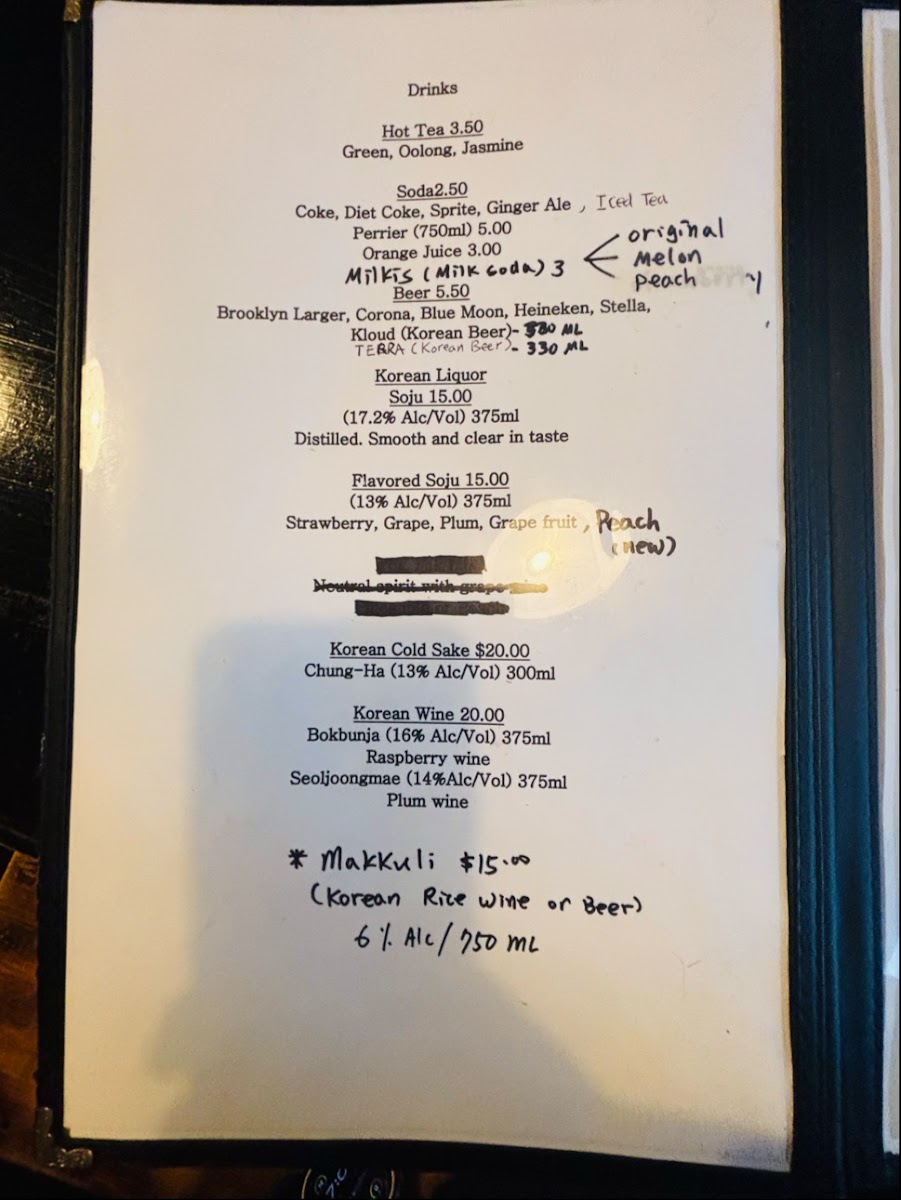 Drinks
Hot Tea 3.50
Green, Oolong, Jasmine
Soda2.50
Coke, Diet Coke, Sprite, Ginger Ale , Iced Tea
Perrier (750ml) 5.00
Orange Juice 3.00
Milkis (Milk Soda) 3
original
Melon
peach
Beer 5.50
Brooklyn Larger, Corona, Blue Moon, Heineken, Stella,
Kloud (Korean Beer)- 330 ML
TERRA (Korean Beer)- 330 ML
Korean Liquor
Soju 15.00
(17.2% Alc/Vol) 375ml
Distilled. Smooth and clear in taste
Flavored Soju 15.00
(13% Alc/Vol) 375ml
Strawberry, Grape, Plum, Grape fruit , Peach
(new)
Neutral spirit with grape wine
Korean Cold Sake $20.00
Chung-Ha (13% Alc/Vol) 300ml
Korean Wine 20.00
Bokbunja (16% Alc/Vol) 375ml
Raspberry wine
Seoljoongmae (14%Alc/Vol) 375ml
Plum wine
* Makkuli $15.00
(Korean Rice wine or Beer)
6% Alc/750 ML